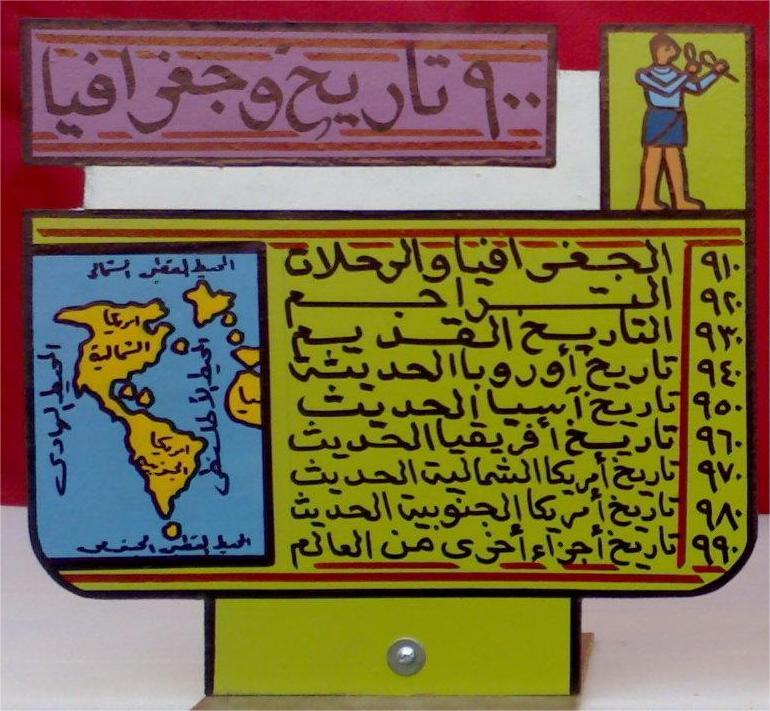 ٩٠٠ تاريخ وجغرافيا
٩١٠ الجغرافيا والرحلات
٩٢٠ التراجم
٩٣٠ التاريخ القديم
٩٤٠ تاريخ أوروبا الحديثة
٩٥٠ تاريخ آسيا الحديث
٩٦٠ تاريخ أفريقيا الحديث
٩٧٠ تاريخ أمريكا الشمالية الحديث
٩٨٠ تاريخ أمريكا الجنوبية الحديث
٩٩٠ تاريخ أجزاء أخرى من العالم
المحيط المتجمد الشمالى
أمريكا
الشمالية
المحيط الهادى
المحيط الأطلسى
أمريكا
الجنوبية